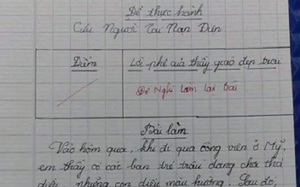 Đề thực hành
Cứu Người Tai Nạn Đứn
Điểm
Lời phê của thầy giáo đẹp trai
Đề Nghị làm lại bài
Bài làm
Vào hôm qua, khi đi qua công viên ở Mỹ,
em thấy có các bạn trẻ trâu đang chơi thả
diều, những con diều màu hường. Sau đó,